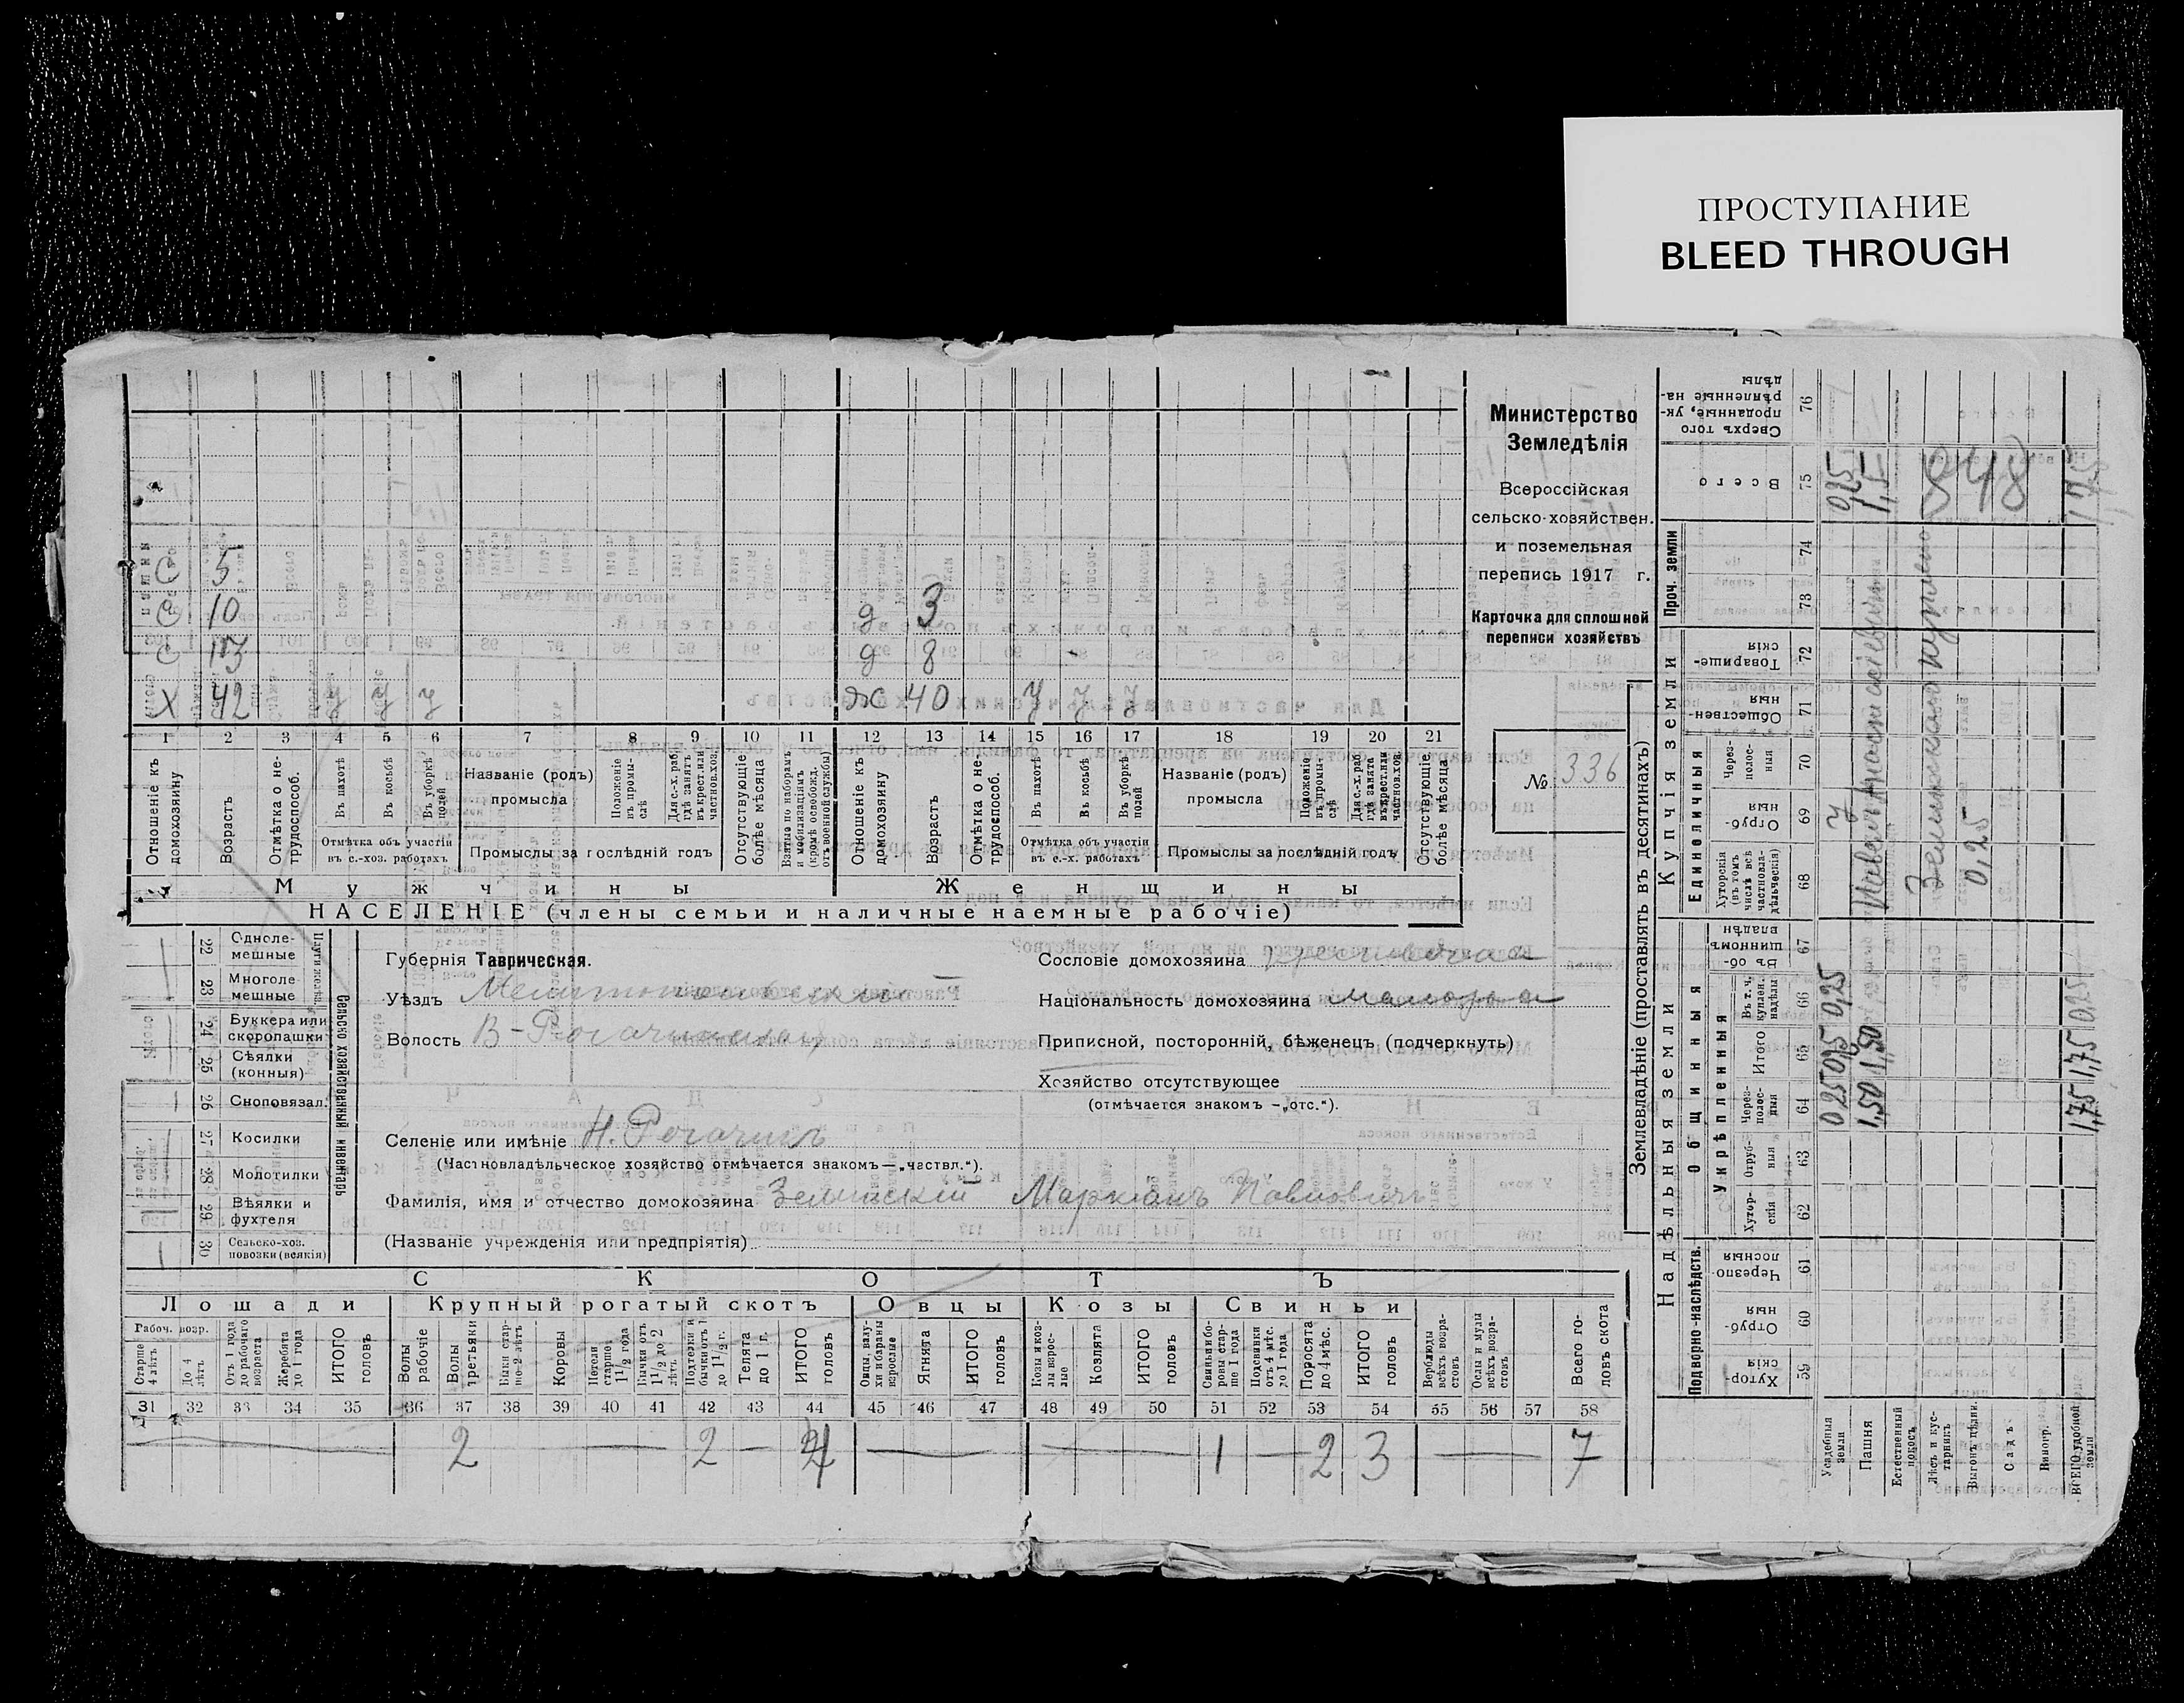 ПРОСТУПАНИЕ
BLEED THROUGH
Министерство
Земледѣлія
Всероссійская
сельско-хозяйствен.
и поземельная
перепись 1917 г.
Карточка для сплошной
переписи хозяйствъ
№ 336
С 5
С 10
С 13
Х 42 У У У
д 3
д 8
ж 40 У У У
1 2 3 4 5 6 7 8 9 10 11 12 13 14 15 16 17 18 19 20 21
Отношеніе къ домохозяину
Возрастъ
Отмѣтка о не-трудоспособ.
Въ пахотѣ
Въ косьбѣ
Въ уборкѣ полей
Отмѣтка объ участіи въ с.-хоз. работахъ
Названіе (родъ) промысла
Положеніе въ промы-слѣ
Для с.-х. раб. гдѣ занятъ въ крест. или частнов. хоз.
Промыслы за послѣдній годъ
Отсутствующіе болѣе мѣсяца
Взятые по наборамъ и мобилизаціямъ (кромѣ освобожд. отъ военной службы)
Отношеніе къ домохозяину
Возрастъ
Отмѣтка о не-трудоспособ.
Въ пахотѣ
Въ косьбѣ
Въ уборкѣ полей
Отмѣтка объ участіи въ с.-х. работахъ
Названіе (родъ) промысла
Положеніе въ промы-слѣ
Для с.-х. раб. гдѣ занята въ крест. или частнов. хоз.
Промыслы за послѣдній годъ
Отсутствующіе болѣе мѣсяца
Мужчины
Женщины
НАСЕЛЕНІЕ (члены семьи и наличные наемные рабочіе)
Сельско хозяйственный инвентарь
22 Одноле-мешные
23 Многоле-мешные
24 Буккера или скоропашки
25 Сѣялки (конныя)
26 Сноповязал.
27 Косилки
28 Молотилки
29 Вѣялки и фухтеля
30 Сельско-хоз. повозки (всякія)
Губернія Таврическая.
Уѣздъ Мелитопольскій
Волость В-Рогачикская
Сословіе домохозяина
Національность домохозяина малорос
Приписной, посторонній, бѣженецъ (подчеркнуть)
Хозяйство отсутствующее
(отмѣчается знакомъ —„отс.“).
Селеніе или имѣніе Н. Рогачикъ
(Частновладѣльческое хозяйство отмѣчается знакомъ—„частвл.“).
Фамилія, имя и отчество домохозяина Зелинскій Маркіанъ Павловичъ
(Названіе учрежденія или предпріятія)
СКОТЪ
Лошади Крупный рогатый скотъ Овцы Козы Свиньи
Рабоч. возр.
Старше 4 лѣтъ
До 4 лѣтъ
Отъ 1 года до рабочаго возраста
Жеребята до 1 года
ИТОГО головъ
Волы рабочіе
Волы третьяки
Быки стар-ше 2 лѣтъ
Коровы
Нетели старше 1 1/2 года
Бычки отъ 1 1/2 до 2 лѣтъ
Подтелки и бычки отъ 1 до 1 1/2 г.
Телята до 1 г.
ИТОГО головъ
Овцы, валу-хи и бараны взрослые
Ягнята
ИТОГО головъ
Козы и коз-лы взрос-лые
Козлята
ИТОГО головъ
Свиньи и бо-ровы стар-ше 1 года
Подсвинки отъ 4 мѣс. до 1 года
Поросята до 4 мѣс.
ИТОГО головъ
Верблюды всѣхъ возра-стовъ
Ослы и мулы всѣхъ возра-стовъ
Всего го-ловъ скота
31 32 33 34 35 36 37 38 39 40 41 42 43 44 45 46 47 48 49 50 51 52 53 54 55 56 57 58
2 — 2 — 4 — — 1 — 2 3 — 7
Землевладѣніе (проставлять въ десятинахъ)
Надѣльныя земли
Купчія земли
Проч. земли
Подворно-наслѣдств.
Общинныя
Укрѣпленныя
Единоличныя
Хутор-скія 59
Отруб-ныя 60
Черезпо-лосныя 61
Хутор-скія 62
Отруб-ныя 63
Через-полос-ныя 64
Итого 65
Въ т. ч. куплен. надѣлы 66
Въ об-щинномъ владѣн 67
Хуторскія (въ томъ числѣ всѣ частновла-дѣльческія) 68
Отруб-ныя 69
Через-полос-ныя 70
Обществен-ныя 71
Товарище-скія 72
73
74
Всего 75
Сверхъ того проданные, ук-рѣпленные на-дѣлы 76
Усадебныя земли 0,25 0,25
Пашня 1,50 1,50 1,5
Естественный покосъ
Лѣсъ и кус-тарникъ
Выгонъ цѣлин.
Садъ
Виногр.
ВСЕГО удобной земли 1,75 1,75 0,25 1,75
куплено
0,25
848